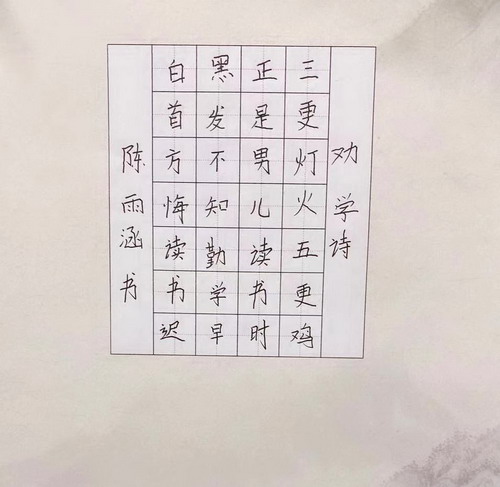 劝学诗
三更灯火五更鸡
正是男儿读书时
黑发不知勤学早
白首方悔读书迟
陈雨涵书